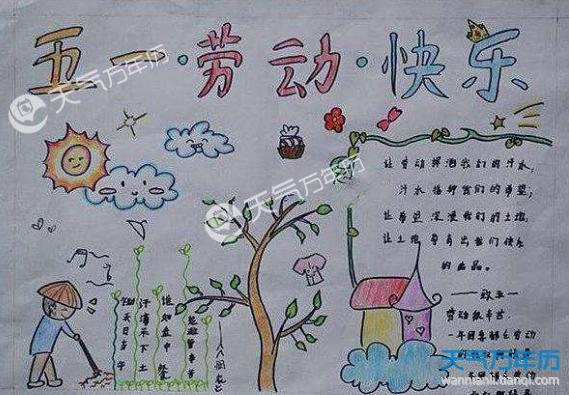 五一·劳动·快乐
天气万年历
天气万年历
让劳动挥洒我们的汗水,
汗水播种我们的希望,
让希望我们的土
让土孕育出我们快乐
的
锄禾日当午
汗滴禾下土
谁知盘中餐
粒粒皆辛苦
劳动
一年四季都在劳动
天气万年历
wannianli.tianqi.com